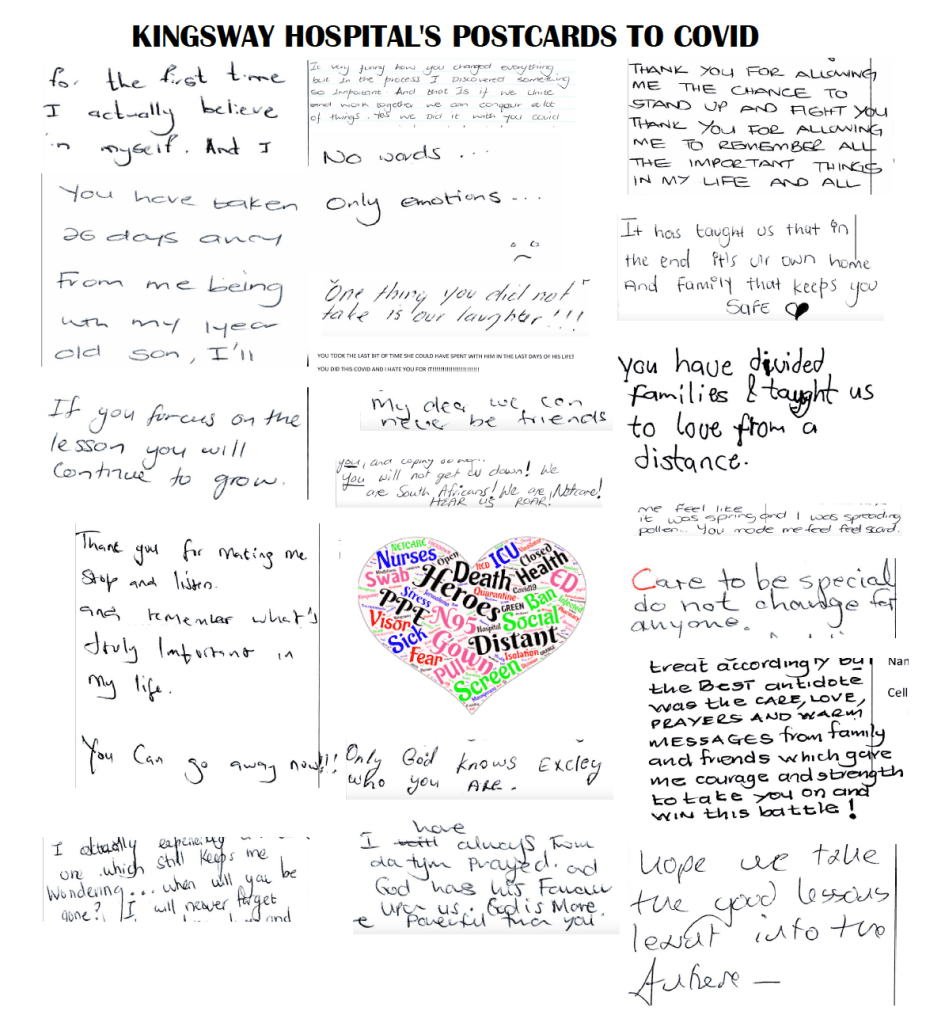 KINGSWAY HOSPITAL'S POSTCARDS TO COVID
for the first time
I actually believe
in myself. And I
You have taken
26 days away
From me being
with my 1year
old son, I'll
If you forcus on the
lesson you will
Continue to grow.
Thank you for making me
Stop and listen.
and remember what's
truly Important in
my life.
You Can go away now!!!
I actually
one which still keeps me
Wondering... when will you be
gone? I will never forget
and
It very funny how you changed everything
but in the process I Discovered something
so Important And that Is if we Unite
and work together we can conquor alot
of things. Yes we Did it with you covid
No words ...
Only emotions ...
"One thing you did not"
take is our laughter!!!
YOU TOOK THE LAST BIT OF TIME SHE COULD HAVE SPENT WITH HIM IN THE LAST DAYS OF HIS LIFE!!
YOU DID THIS COVID AND I HATE YOU FOR IT!!!!!!!!!!!!!!!!!!!!!!!!
My dear we can
never be friends
you, and coping
You will not get us down! We
are South Africans! We are Netcare!
HEAR US ROAR!
NETCARE
Nurses
Open
ICU
Closed
Swab
Heroes
Death
RED
Covid19
Health
ED
Quarantine
PPE
Stress
GREEN
Ban
Visor
N95
Hospital
Social
Sick
Gown
Distant
Fear
PUI
Isolation
Screen
Only God knows Excley
who you ARE.
have
I will always from
da tym prayed. and
God has his Favour
upon us. God is More
e Powerful than you
THANK YOU FOR ALLOWING
ME THE CHANCE TO
STAND UP AND FIGHT YOU
THANK YOU FOR ALLOWING
ME TO REMEMBER ALL
THE IMPORTANT THINGS
IN MY LIFE AND ALL
It has taught us that in
the end it's ur own home
And family that keeps you
Safe ♥
you have divided
families & taught us
to love from a
distance.
me feel like
it was spring and I was spreading
pollen... You made me feel feel scard.
Care to be special
do not change for
anyone.
treat accordingly but
the BEST antidote
was the CARE, LOVE,
PRAYERS AND WARM
MESSAGES from family
and friends which gave
me courage and strength
to take you on and
WIN this battle!
Nan
Cell
Hope we take
the good lessons
learnt into the
future —